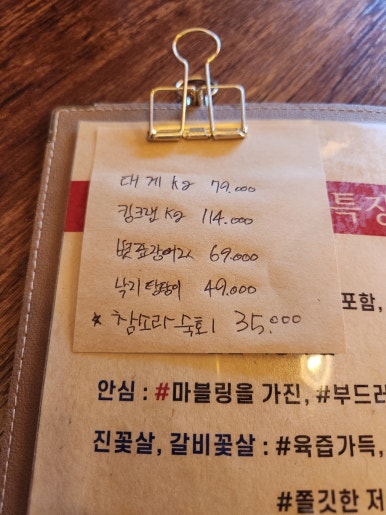 대게 kg 79.000
킹크랩 kg 114.000
69.000
낙지탕탕이 49.000
* 참소라숙회 35.000
특
포함,
안심 : #마블링을 가진, #부드러
진꽃살, 갈비꽃살 : #육즙가득,
#쫄깃한 저